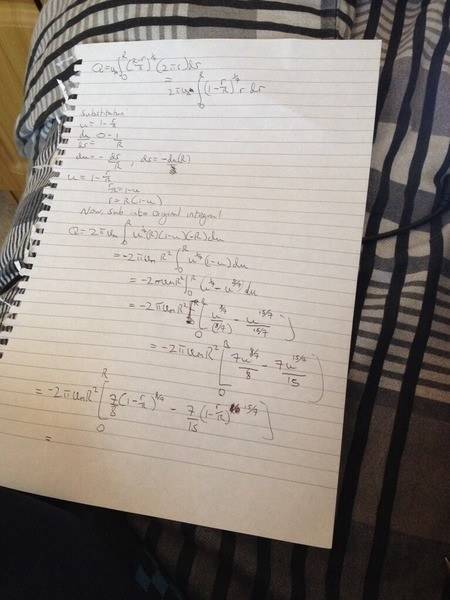 Q = u_m ∫_0^R ((R-r)/R)^{1/7} (2πr) dr
= 2πu_m ∫_0^R (1-r/R)^{1/7} r dr
Substitution
u = 1 - r/R
du/dr = 0 - 1/R
du = - dr/R , dr = -du(R)
u = 1 - r/R
r/R = 1-u
r = R(1-u)
Now, Sub into Original integral
Q = 2πu_m ∫_0^R u^{1/7}(R)(1-u)(-R)du
= -2πu_m R² ∫_0^R u^{1/7}(1-u)du
= -2πu_m R² ∫_0^R (u^{1/7} - u^{8/7}) du
= -2πu_m R² [ u^{8/7}/(8/7) - u^{15/7}/(15/7) ]_0^R
= -2πu_m R² [ 7u^{8/7}/8 - 7u^{15/7}/15 ]_0^R
= -2πu_m R² [ 7/8 (1-r/R)^{8/7} - 7/15 (1-r/R)^{15/7} ]_0^R
=